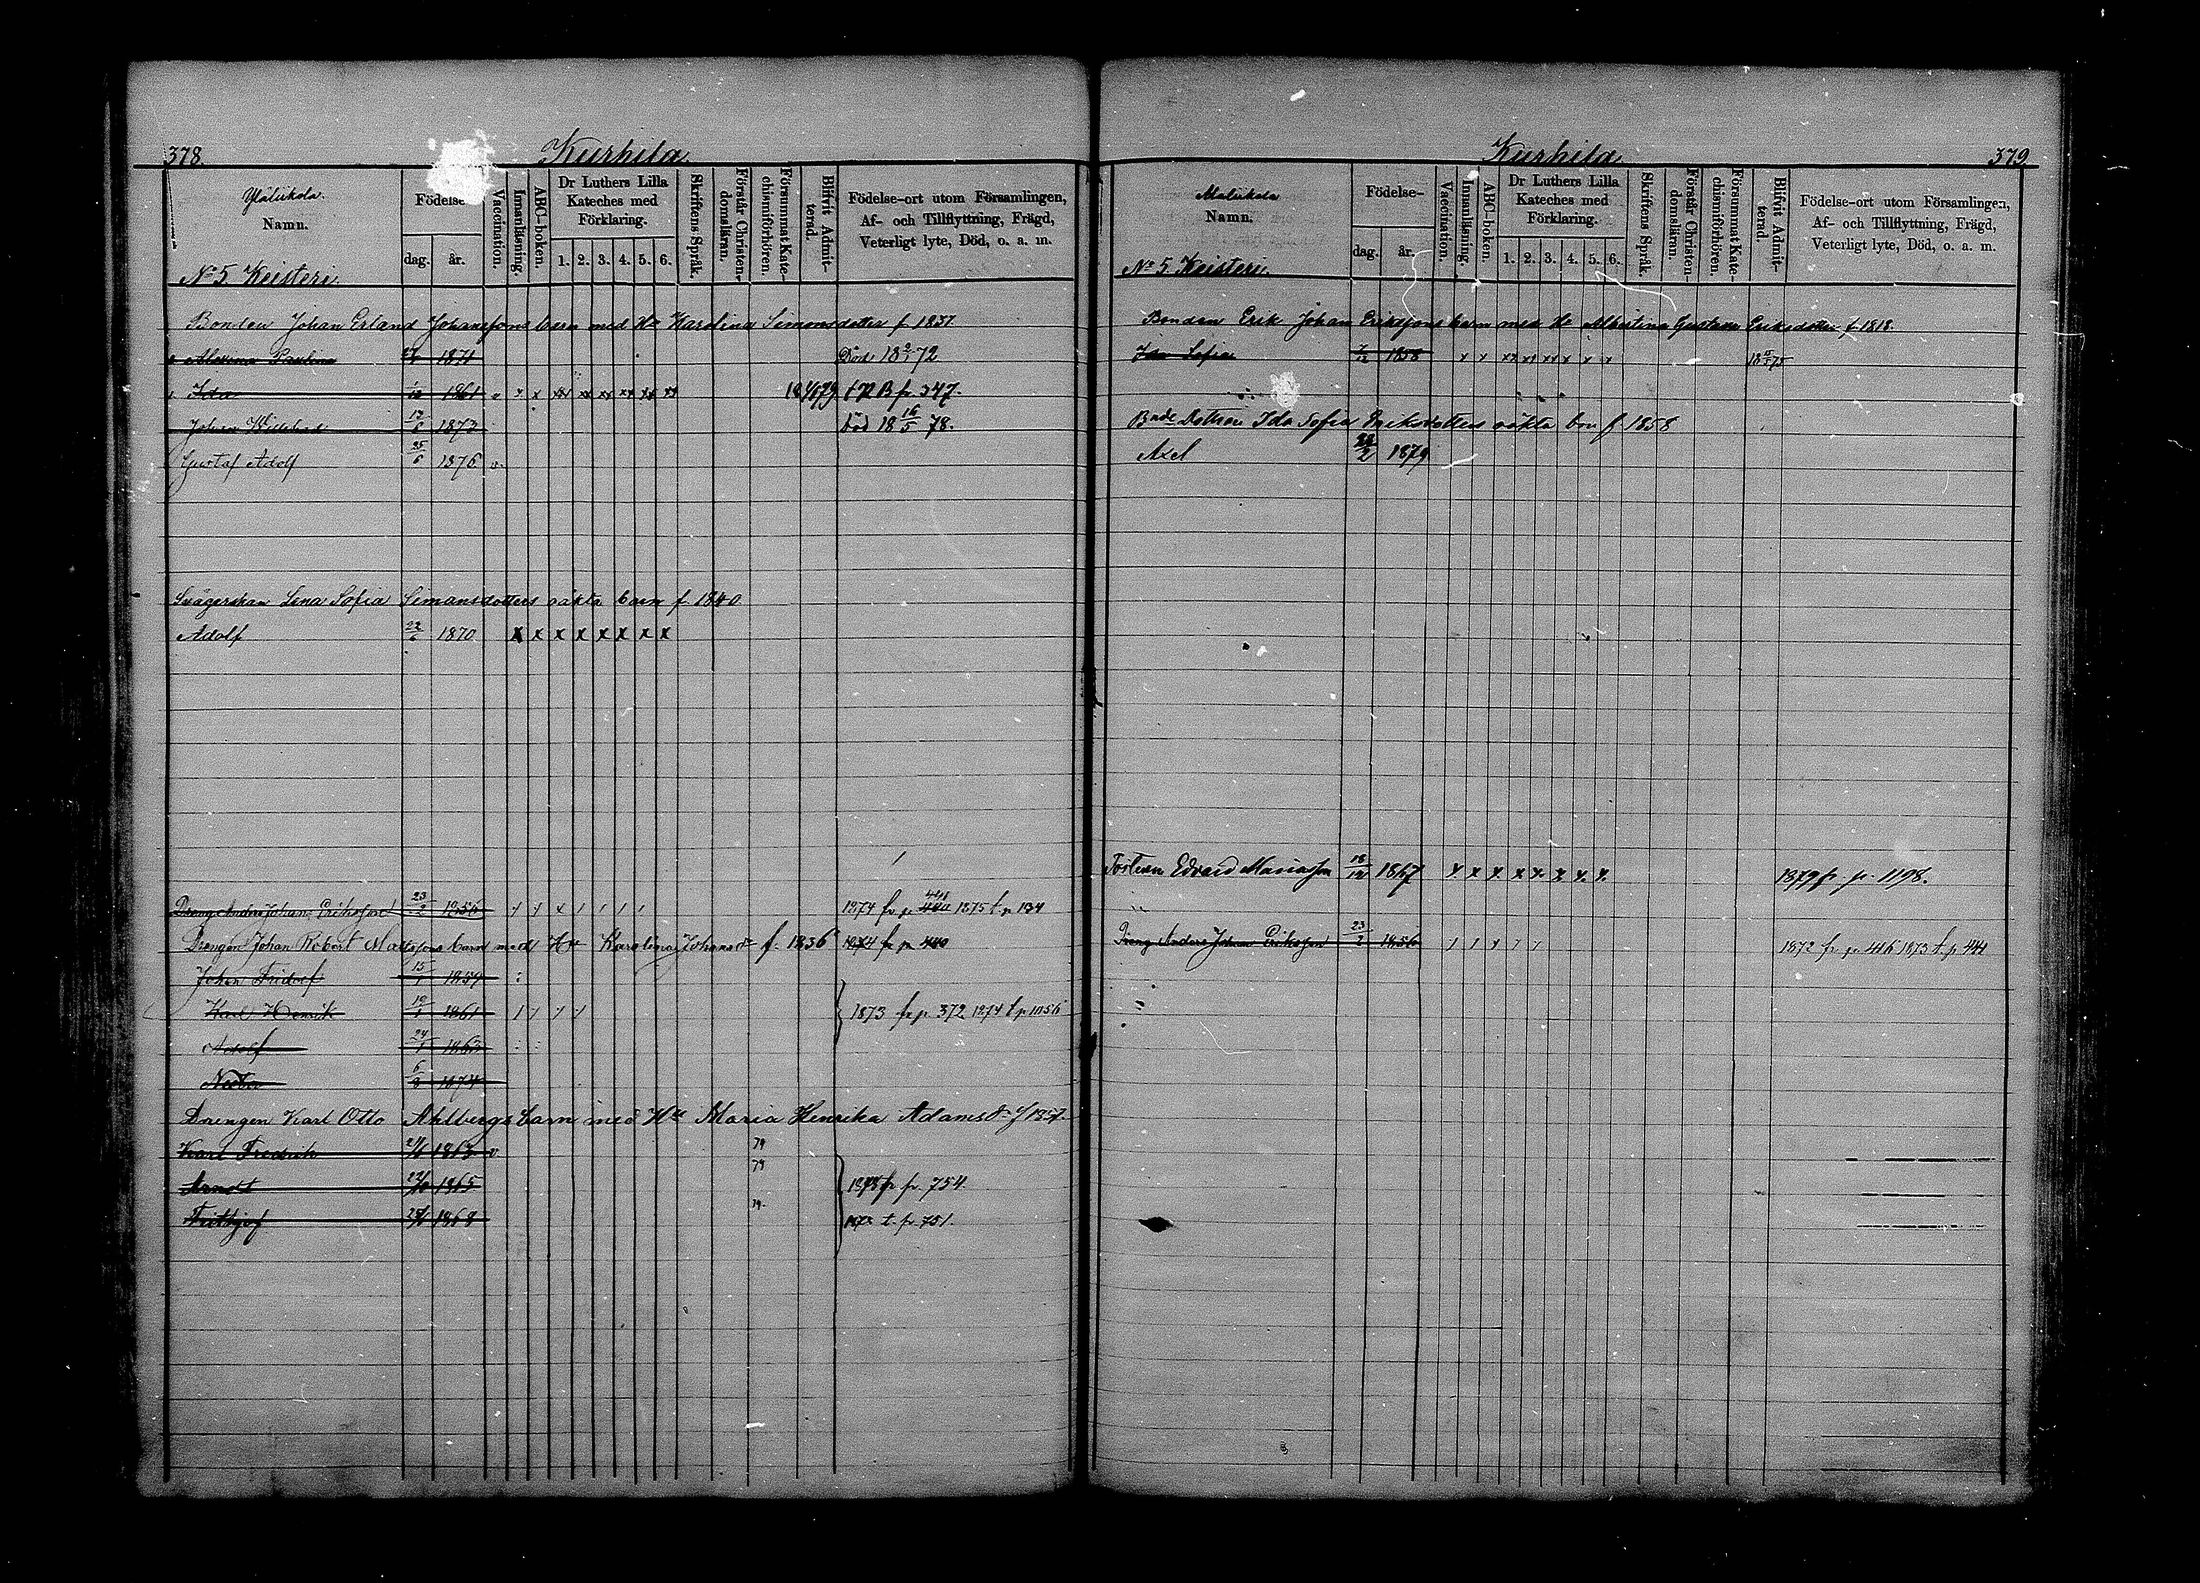 378. Kurhila
Ylälukola.
Namn.
Födelse-
dag. år.
Vaccination.
Innanläsning.
ABC-boken.
Dr Luthers Lilla Kateches med Förklaring.
1. 2. 3. 4. 5. 6.
Skriftens Språk.
Förstår Christendomsläran.
Försummat Katechismiförhören.
Blifvit Admitterad.
Födelse-ort utom Församlingen,
Af- och Tillflyttning, Frägd,
Veterligt lyte, Död, o. a. m.
No 5. Keisteri.
Bonden Johan Erland Johanssons barn med Hu Karolina Simonsdotter f. 1837
Paulina 1871 Död 18 2/1 72
Ida 1/12 1861 v x x xx xx xx xx xx xx t R B p. 347.
Johan Willehad 17/6 1873 Död 18 16/5 78.
Gustaf Adolf 25/6 1876 v.
Svägerskan Lena Sofia Simonsdotters oäkta barn f. 1840
Adolf 22/6 1870 x x x x x x x x
Dreng Anders Johan Eriksson 23/2 1856 1874 fr p 1875 t p 134
Drengen Johan Robert Matssons barn med Hu Karolina Johansdr f. 1836 1874 fr p 440
Johan Fridolf 15/1 1859
Karl Henrik 19/1 1861 1873 fr p. 372 1874 t p 1056
Adolf 24/1 1863
6/3 1874
Drengen Karl Otto Ahlbergs barn med Hu Maria Henrika Adamsdr f 1837.
Karl Fredrik 1863 v 79
1865 79 fr p. 754
Frithjof 1868 79. t. p. 751.
Kurhila 379.
Malukola
Namn.
Födelse-
dag. år.
Vaccination.
Innanläsning.
ABC-boken.
Dr Luthers Lilla Kateches med Förklaring.
1. 2. 3. 4. 5. 6.
Skriftens Språk.
Förstår Christendomsläran.
Försummat Katechismiförhören.
Blifvit Admitterad.
Födelse-ort utom Församlingen,
Af- och Tillflyttning, Frägd,
Veterligt lyte, Död, o. a. m.
No 5. Keisteri.
Bonden Erik Johan Erikssons barn med Hu Albertina Gustava Eriksdotter f. 1818.
Ida Sofia 7/12 1858 x x xx xx xx x x x
Bnde Dottren Ida Sofia Eriksdotters oäkta barn f. 1858
Axel 28/2 1879
Edvard Mariasson 18/12 1867 x. x x. x x. x x. x. 1879 fr p. 1198.
Dreng Anders Johan Eriksson 23/2 1856 1872 fr. p. 416 1873 t. p 441